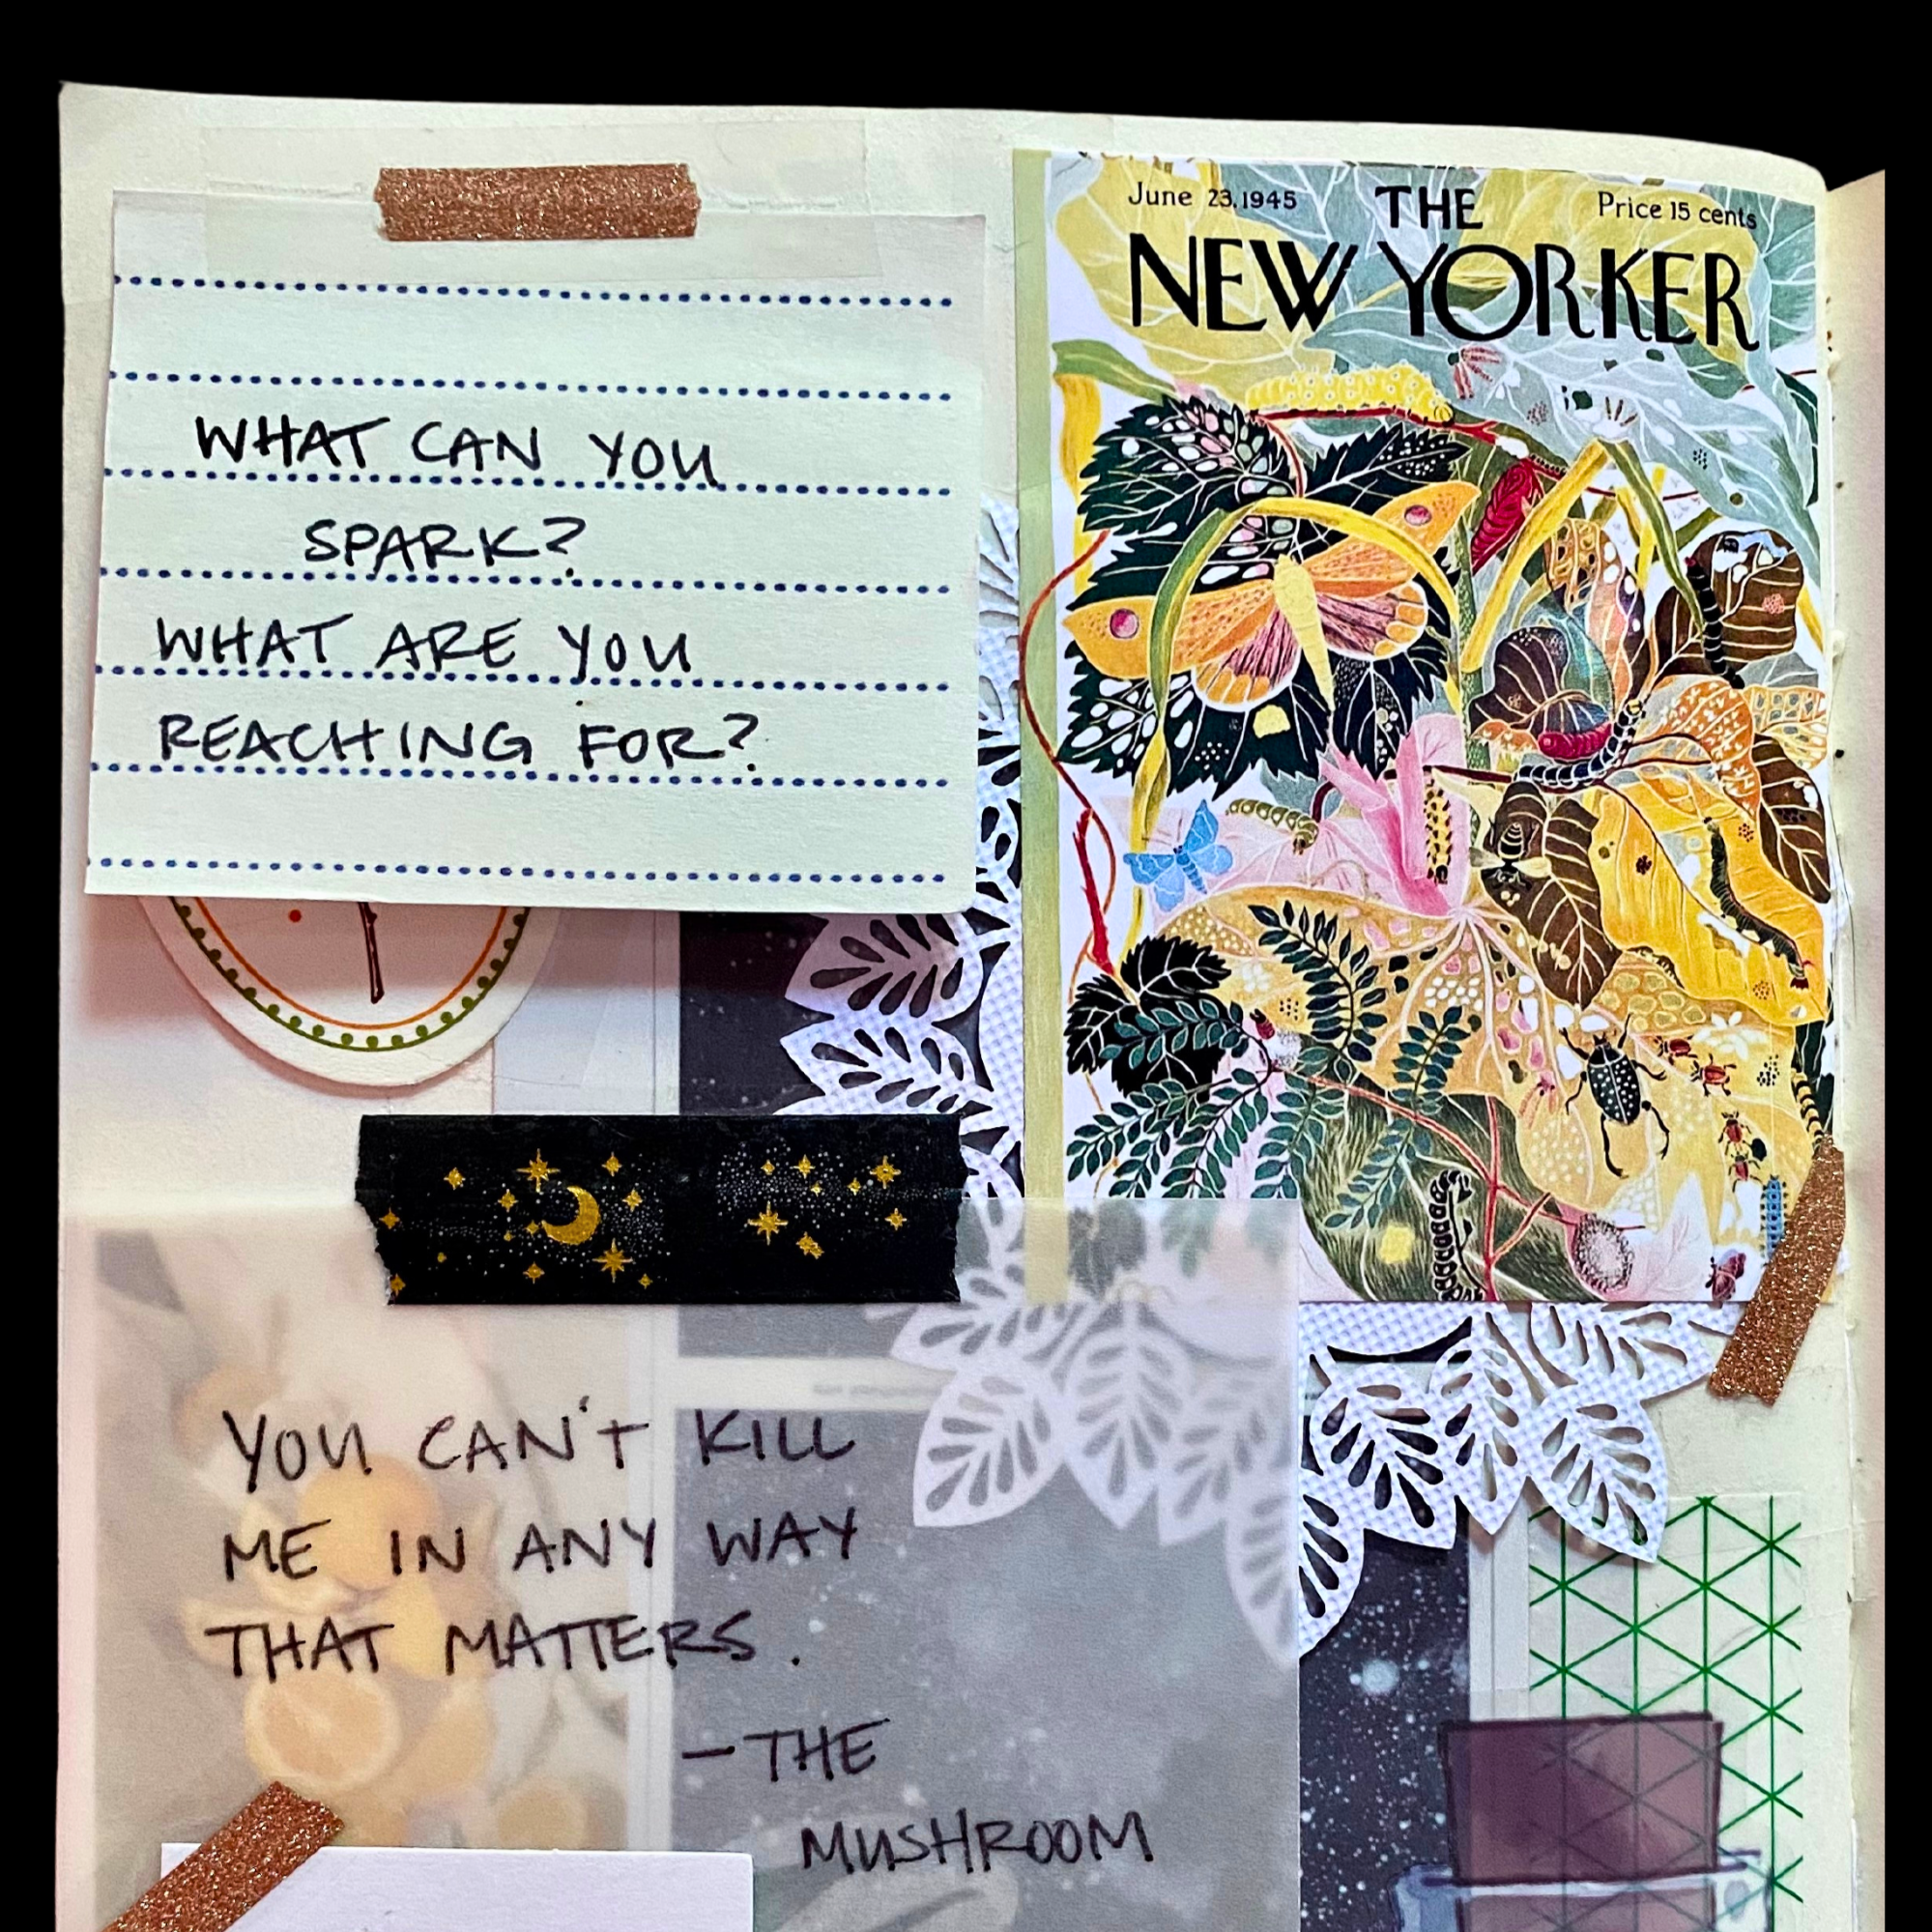 WHAT CAN YOU
SPARK?
WHAT ARE YOU
REACHING FOR?
June 23, 1945
THE
Price 15 cents
NEW YORKER
YOU CAN'T KILL
ME IN ANY WAY
THAT MATTERS.
—THE
MUSHROOM